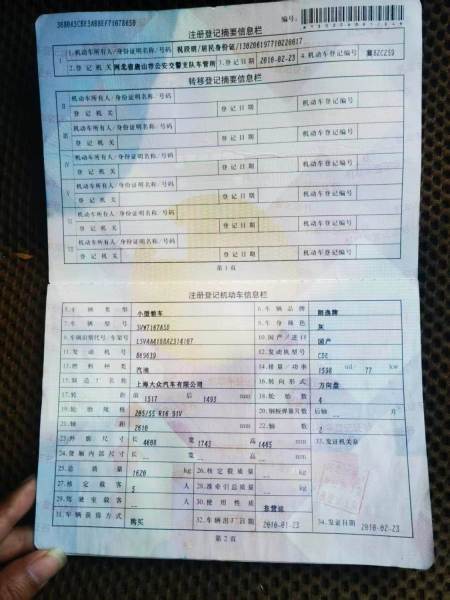 注册登记摘要信息栏
编号:
1.机动车所有人/身份证明名称/号码 居民身份证/
2.登记机关 河北省唐山市公安交警支队车管所 3.登记日期 2010-02-23 4.机动车登记编号 冀BZCZ59
转移登记摘要信息栏
II 机动车所有人/身份证明名称/号码
登记机关 登记日期 机动车登记编号
III 机动车所有人/身份证明名称/号码
登记机关 登记日期 机动车登记编号
IV 机动车所有人/身份证明名称/号码
登记机关 登记日期 机动车登记编号
V 机动车所有人/身份证明名称/号码
登记机关 登记日期 机动车登记编号
VI 机动车所有人/身份证明名称/号码
登记机关 登记日期 机动车登记编号
VII 机动车所有人/身份证明名称/号码
登记机关 登记日期 机动车登记编号
第1页
注册登记机动车信息栏
5.车辆类型 小型轿车 6.车辆品牌 朗逸牌
7.车辆型号 SVW7167ASD 8.车身颜色 灰
9.车辆识别代号/车架号 10.国产/进口 国产
11.发动机号 12.发动机型号 CDE
13.燃料种类 汽油 14.排量/功率 1598 ml/ 77 kw
15.制造厂名称 上海大众汽车有限公司 16.转向形式 方向盘
17.轮距 前 1517 后 1493 mm 18.轮胎数 4
19.轮胎规格 205/55 R16 91V 20.钢板弹簧片数 后轴 -- 片
21.轴距 2610 mm 22.轴数 2
23.外廓尺寸 长 4608 宽 1743 高 1465 mm 33.发证机关章
24.货厢内部尺寸 长 -- 宽 -- 高 -- mm
25.总质量 1620 kg 26.核定载质量 -- kg
27.核定载客 5 人 28.准牵引总质量 -- kg
29.驾驶室载客 -- 人 30.使用性质 非营运
31.车辆获得方式 购买 32.车辆出厂日期 2010-01-23 34.发证日期 2010-02-23
第2页